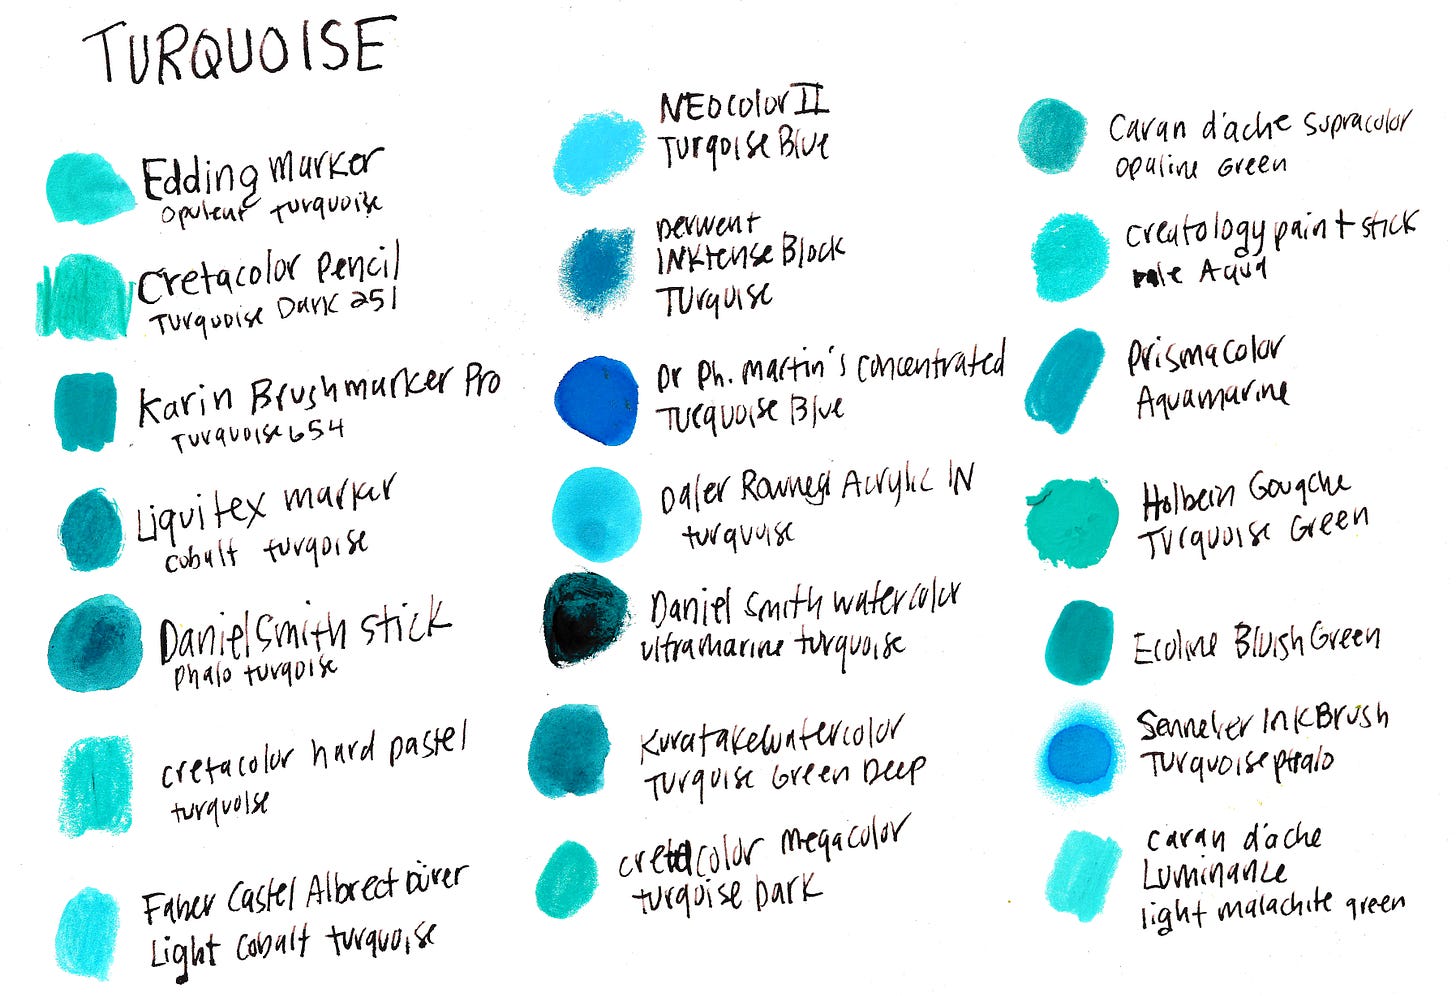 TURQUOISE
Edding Marker
Opulent Turquoise
Cretacolor Pencil
Turquoise Dark 251
Karin Brushmarker Pro
Turquoise 654
Liquitex marker
cobalt turqoise
Daniel Smith stick
Phalo turqoise
cretacolor hard pastel
turquoise
Faber Castel Albrect Dürer
Light cobalt turquoise
NEOcolor II
Turqoise Blue
Derwent
INKtense Block
Turquise
Dr Ph. Martin's concentrated
Turquoise Blue
Daler Rowney Acrylic IN
turquoise
Daniel Smith watercolor
ultramarine turquoise
Kuratakewatercolor
Turquise Green Deep
cretacolor megacolor
turqoise Dark
Caran d'ache supracolor
opaline Green
creatology paint stick
pale Aqua
Prismacolor
Aquamarine
Holbein Gouache
Turquoise Green
Ecoline Bluish Green
Sennelier Ink Brush
Turquoise phtalo
caran d'ache
Luminance
light malachite green